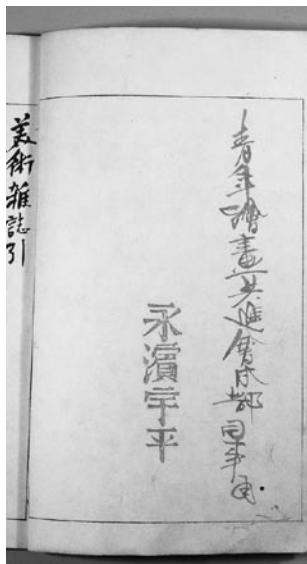 青年繪畫共進會本部
永濱宇平
美術雜誌引